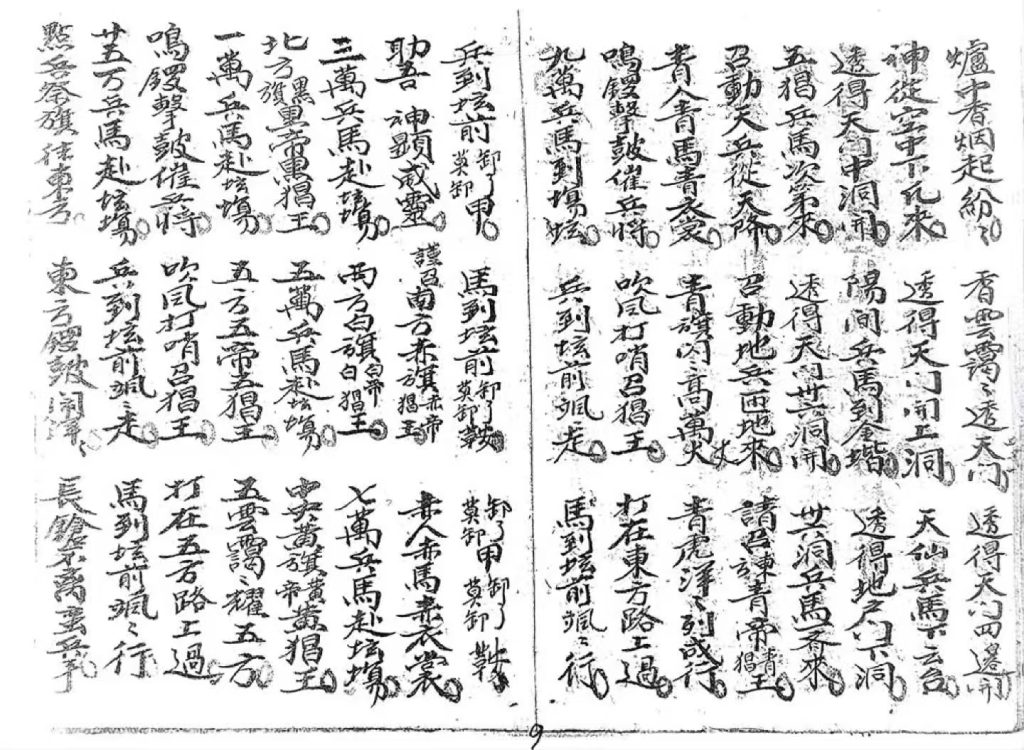 爐中香烟起紛〻 香雲靄〻透天門 透得天門四邊開
神從空中下凡來 透得天門開上洞 天仙兵馬下云台
透得天門中洞開 陽間兵馬到金堦 透得地户門下洞
五猖兵馬次第來 透得天門卅六洞開 卅六洞兵馬齊來
召動天兵從天降 召動地兵匝地來 請召東青帝青猖王
青人青馬青衣裳 青旗閃高萬丈 青虎洋〻列成行
鳴鑼擊鼓催兵將 吹風打哨召猖王 打在東方路上過
九萬兵馬到塲坛 兵到坛前颯〻走 馬到坛前颯〻行
兵到坛前卸了甲莫卸 馬到坛前卸了鞍莫卸 卸了甲莫卸 卸了鞍莫卸
助吾神顕威靈 謹召南方赤旗赤帝赤猖王 赤人赤馬赤衣裳
三萬兵馬赴坛塲 西方白旗白帝白猖王 七萬兵馬赴坛塲
北方黑旗黑帝黑猖王 五萬兵馬赴坛塲 中央黃旗黃帝黃猖王
一萬兵馬赴坛塲 五方五帝五猖王 五雲靄〻耀五方
鳴鑼擊鼓催兵將 吹風打哨召猖王 打在五方路上過
廿五万兵馬赴坛塲 兵到坛前颯〻走 馬到坛前颯〻行
點兵祭旗往東方 東方鑼鼓鬧洋〻 長鎗不离
9